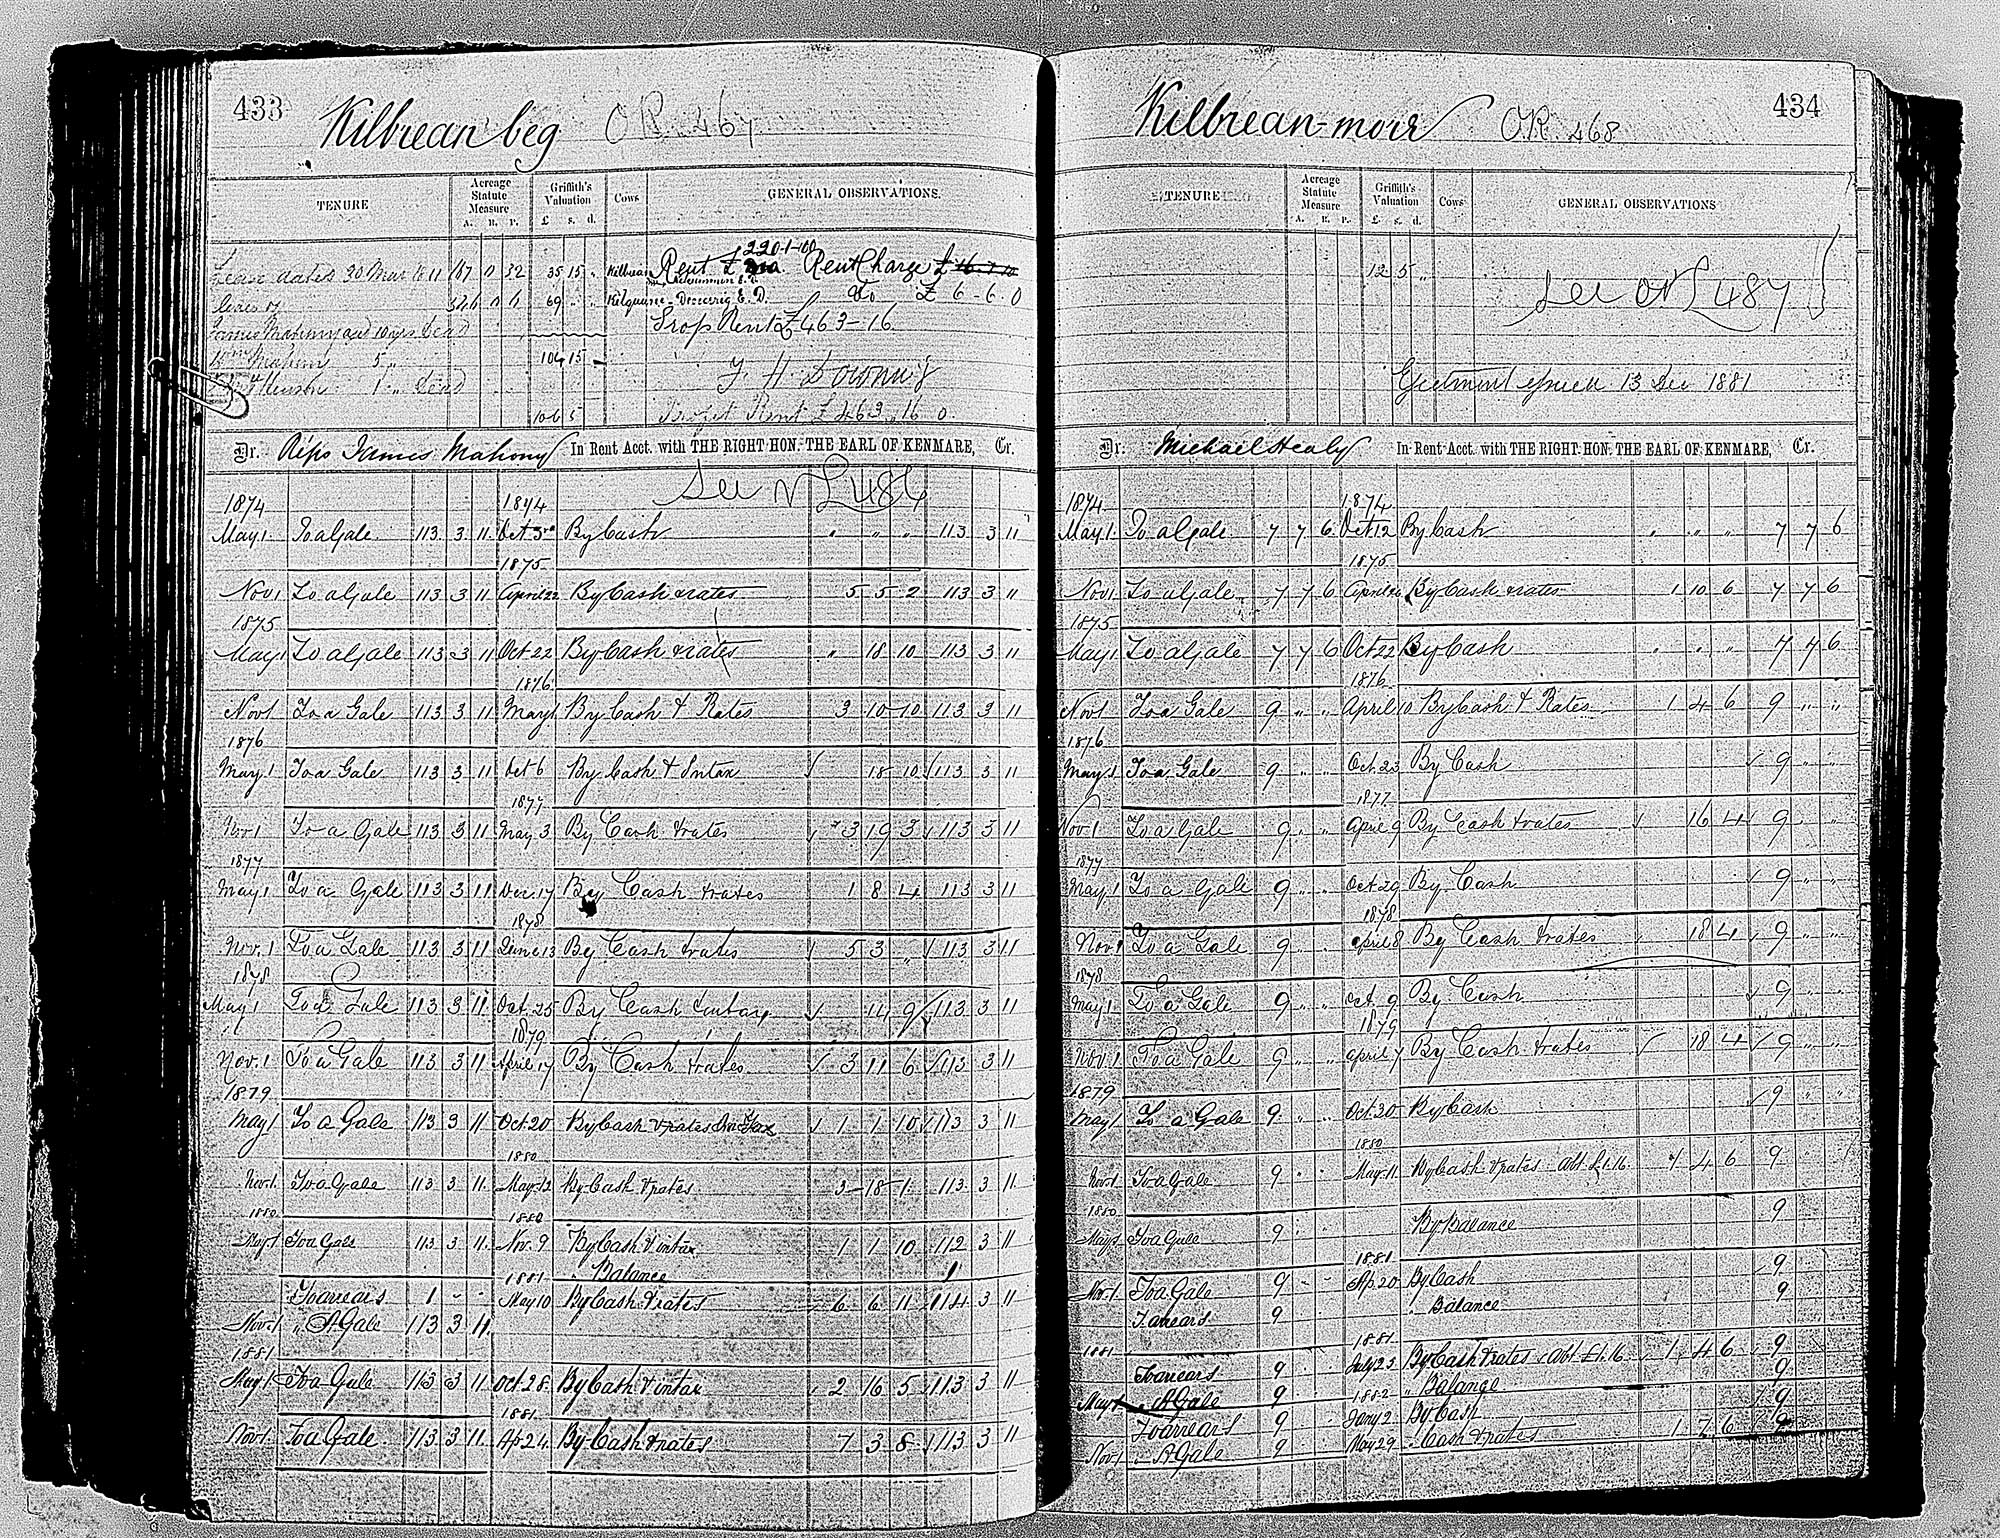 433
Kilbrean beg OR 467
TENURE Acreage Statute Measure A. R. P. Griffith's Valuation £ s. d. Cows GENERAL OBSERVATIONS.
220-1-10
Lease dated 30 Mar 1811 167 0 32 35 15 " Kilbrean Rent £ Rent Charge £
lives of 69 " " Kilquane - E. D. Do £ 6-6.0
James Mahony aged 10 yrs Dead Prop Rent £ 463-16
Mahony 5 " 104 15
1 " Dead
106 5 Profit Rent £ 463 " 16 0
Dr. Reps James Mahony In Rent Acct. with THE RIGHT HON. THE EARL OF KENMARE, Cr.
See N L 486
1874 1874
May 1 To a Gale 113 3 11 Oct 3rd By Cash " " " 113 3 11
1875
Nov 1 To a Gale 113 3 11 April 22 By Cash & rates 5 5 2 113 3 11
1875
May 1 To a Gale 113 3 11 Oct 22 By Cash & rates " 18 10 113 3 11
1876
Nov 1 To a Gale 113 3 11 May 1 By Cash & Rates 3 10 10 113 3 11
1876
May 1 To a Gale 113 3 11 Oct 6 By Cash & Intax 18 10 113 3 11
1877
Nov 1 To a Gale 113 3 11 May 3 By Cash & rates 3 19 3 113 3 11
1877
May 1 To a Gale 113 3 11 Dec 17 By Cash & rates 1 8 4 113 3 11
1878
Nov. 1 To a Gale 113 3 11 June 13 By Cash & rates 5 3 " 113 3 11
1878
May 1 To a Gale 113 3 11 Oct. 25 By Cash & intax 14 9 113 3 11
1879
Nov. 1 To a Gale 113 3 11 April 17 By Cash & rates 3 11 6 113 3 11
1879
May 1 To a Gale 113 3 11 Oct 20 By Cash & rates Inc Tax 1 1 10 113 3 11
1880
Nov. 1. To a Gale 113 3 11 May 12 By Cash & rates 3 18 1 113 3 11
1880 1880
May 1 To a Gale 113 3 11 Nov. 9 By Cash & intax 1 1 10 112 3 11
1881 " Balance 1
To arrears 1 - - May 10 By Cash & rates 6 6 11 114 3 11
Nov. 1 " A Gale 113 3 11
1881
May 1 To a Gale 113 3 11 Oct. 28 By Cash & intax 2 16 5 113 3 11
1881
Nov 1 To a Gale 113 3 11 Ap 24 By Cash & rates 7 3 8 113 3 11
434
Kilbrean-moir OR. 468
TENURE Acreage Statute Measure A. R. P. Griffith's Valuation £ s. d. Cows GENERAL OBSERVATIONS
12 5 "
See OR L 487
Ejectment 13 Dec 1881
Dr. Michael Healy In Rent Acct. with THE RIGHT HON. THE EARL OF KENMARE, Cr.
1874 1874
May 1. To a Gale 7 7 6 Oct 12 By Cash " " " 7 7 6
1875
Nov 1 To a Gale 7 7 6 April By Cash & rates 1 10 6 7 7 6
1875
May 1 To a Gale 7 7 6 Oct 22 By Cash " " " 7 7 6
1876
Nov 1 To a Gale 9 " " April 10 By Cash & Rates 1 4 6 9 " "
1876
May 1 To a Gale 9 " " Oct. 23 By Cash 9 " "
1877
Nov. 1 To a Gale 9 " " April 9 By Cash & rates 16 4 9 " "
1877
May 1 To a Gale 9 " " Oct 29 By Cash 9 " "
1878
Nov 1 To a Gale 9 " " April 8 By Cash & rates 18 4 9 " "
1878
May 1 To a Gale 9 " " Oct. 9 By Cash 9 " "
1879
Nov. 1 To a Gale 9 " " April 7 By Cash & rates 18 4 9 " "
1879
May 1 To a Gale 9 " " Oct. 20 By Cash 9 " "
1880
Nov. 1 To a Gale 9 " " May 11 By Cash & rates Abt £1.16 4 6 9 " "
1880
May 1 To a Gale 9 By Balance 9
1881
Nov. 1 To a Gale 9 " " Ap. 20 By Cash 9
To arrears 9 " Balance 9
1881 1881
To arrears 9 July 23 By Cash & rates Abt £1.16 1 4 6 9
May 1 " A Gale 9 1882 " Balance 9
To arrears 9 Jany 2 By Cash 9
Nov 1 " A Gale 9 May 29 " Cash & rates 1 7 6 9